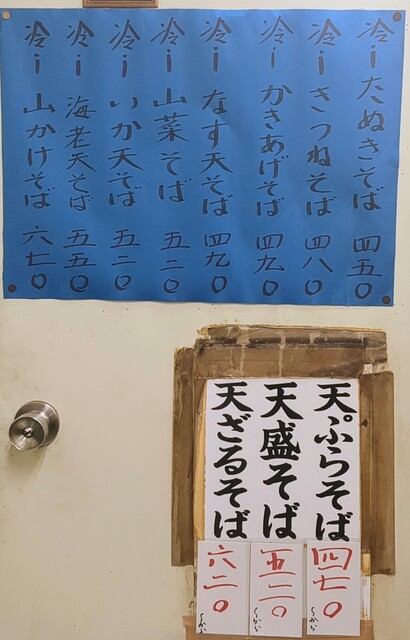 冷したぬきそば 四五〇
冷しきつねそば 四八〇
冷しかきあげそば 四九〇
冷しなす天そば 四九〇
冷し山菜そば 五二〇
冷しいか天そば 五二〇
冷し海老天そば 五五〇
冷し山かけそば 六七〇
天ぷらそば 四七〇 〜から
天盛そば 五二〇 〜から
天ざるそば 六二〇 〜から